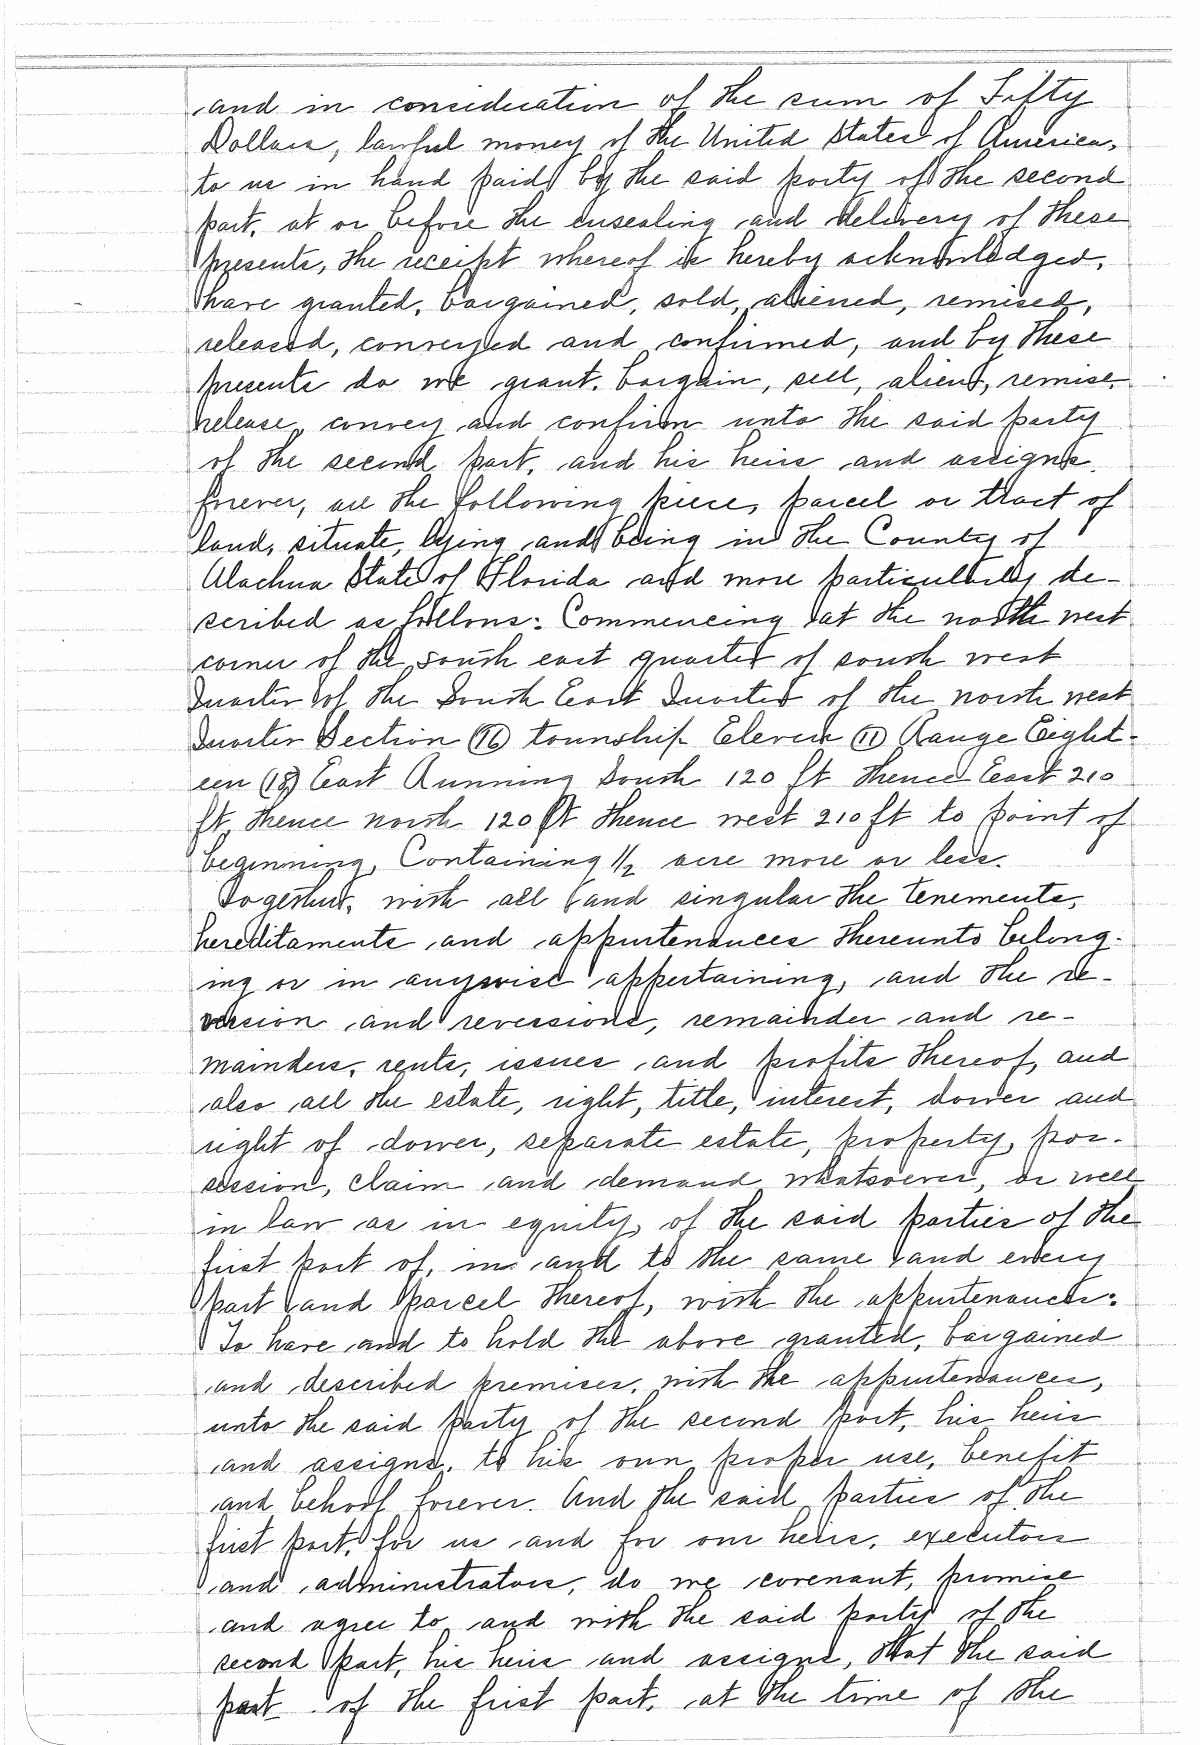 and in consideration of the sum of Fifty
Dollars, lawful money of the United States of America,
to us in hand paid by the said party of the second
part, at or before the ensealing and delivery of these
presents, the receipt whereof is hereby acknowledged,
have granted, bargained, sold, aliened, remised,
released, conveyed and confirmed, and by these
presents do we grant, bargain, sell, alien, remise,
release, convey and confirm unto the said party
of the second part, and his heirs and assigns
forever, all the following piece, parcel or tract of
land, situate, lying and being in the County of
Alachua State of Florida and more particularly de-
scribed as follows: Commencing at the north west
corner of the south east quarter of south west
Quarter of the South East Quarter of the north west
Quarter Section (16) township Eleven (11) Range Eight-
een (18) East Running South 120 ft thence East 210
ft thence north 120 ft thence west 210 ft to point of
beginning, Containing 1/2 acre more or less.
Together, with all and singular the tenements,
hereditaments and appurtenances thereunto belong-
ing or in anywise appertaining, and the re-
version and reversions, remainder and re-
mainders, rents, issues and profits thereof, and
also all the estate, right, title, interest, dower and
right of dower, separate estate, property, pos-
session, claim and demand whatsoever, as well
in law as in equity, of the said parties of the
first part of, in and to the same and every
part and parcel thereof, with the appurtenances:
To have and to hold the above granted, bargained
and described premises, with the appurtenances,
unto the said party of the second part, his heirs
and assigns, to his own proper use, benefit
and behoof forever. And the said parties of the
first part, for us and for our heirs, executors
and administrators, do we covenant, promise
and agree to and with the said party of the
second part, his heirs and assigns, that the said
part of the first part, at the time of the